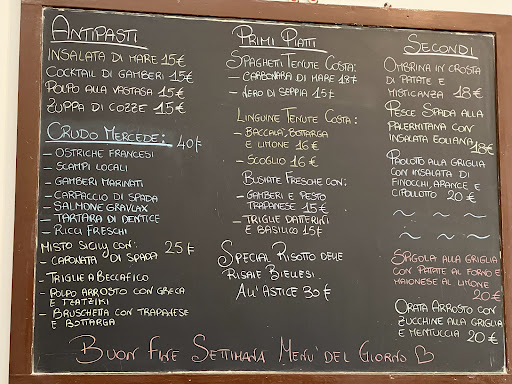 ANTIPASTI
INSALATA DI MARE 15€
COCKTAIL DI GAMBERI 15€
POLPO ALLA VASTASA 15€
ZUPPA DI COZZE 15€
CRUDO MERCEDE: 40€
- OSTRICHE FRANCESI
- SCAMPI LOCALI
- GAMBERI MARINATI
- CARPACCIO DI SPADA
- SALMONE GRAVLAX
- TARTARA DI DENTICE
- RICCI FRESCHI
MISTO SICILY CON: 25€
- CAPONATA DI SPADA
- TRIGLIE A BECCAFICO
- POLPO ARROSTO CON GRECA
E TZATZIKI
- BRUSCHETTA CON TRAPANESE
E BOTTARGA
PRIMI PIATTI
SPAGHETI TENUTE COSTA:
- CARBONARA DI MARE 18€
- NERO DI SEPPIA 15€
LINGUINE TENUTE COSTA:
- BACCALÀ, BOTTARGA
E LIMONE 16€
- SCOGLIO 16€
BUSIATE FRESCHE CON:
- GAMBERI E PESTO
TRAPANESE 15€
- TRIGLIE DATTERINI
E BASILICO 15€
SPECIAL RISOTTO DELLE
RISAIE BIELLESI
ALL'ASTICE 30€
SECONDI
OMBRINA IN CROSTA
DI PATATE E
MISTICANZA 18€
PESCE SPADA ALLA
PALERMITANA CON
INSALATA EOLIANA
18€
PAOLOTO ALLA GRIGLIA
CON INSALATA DI
FINOCCHI, ARANCE E
CIPOLLOTTO 20€
SPIGOLA ALLA GRIGLIA
CON PATATE AL FORNO E
MAIONESE AL LIMONE
20€
ORATA ARROSTO CON
ZUCCHINE ALLA GRIGLIA
E MENTUCCIA 20€
BUON FINE SETTIMANA MENÙ DEL GIORNO